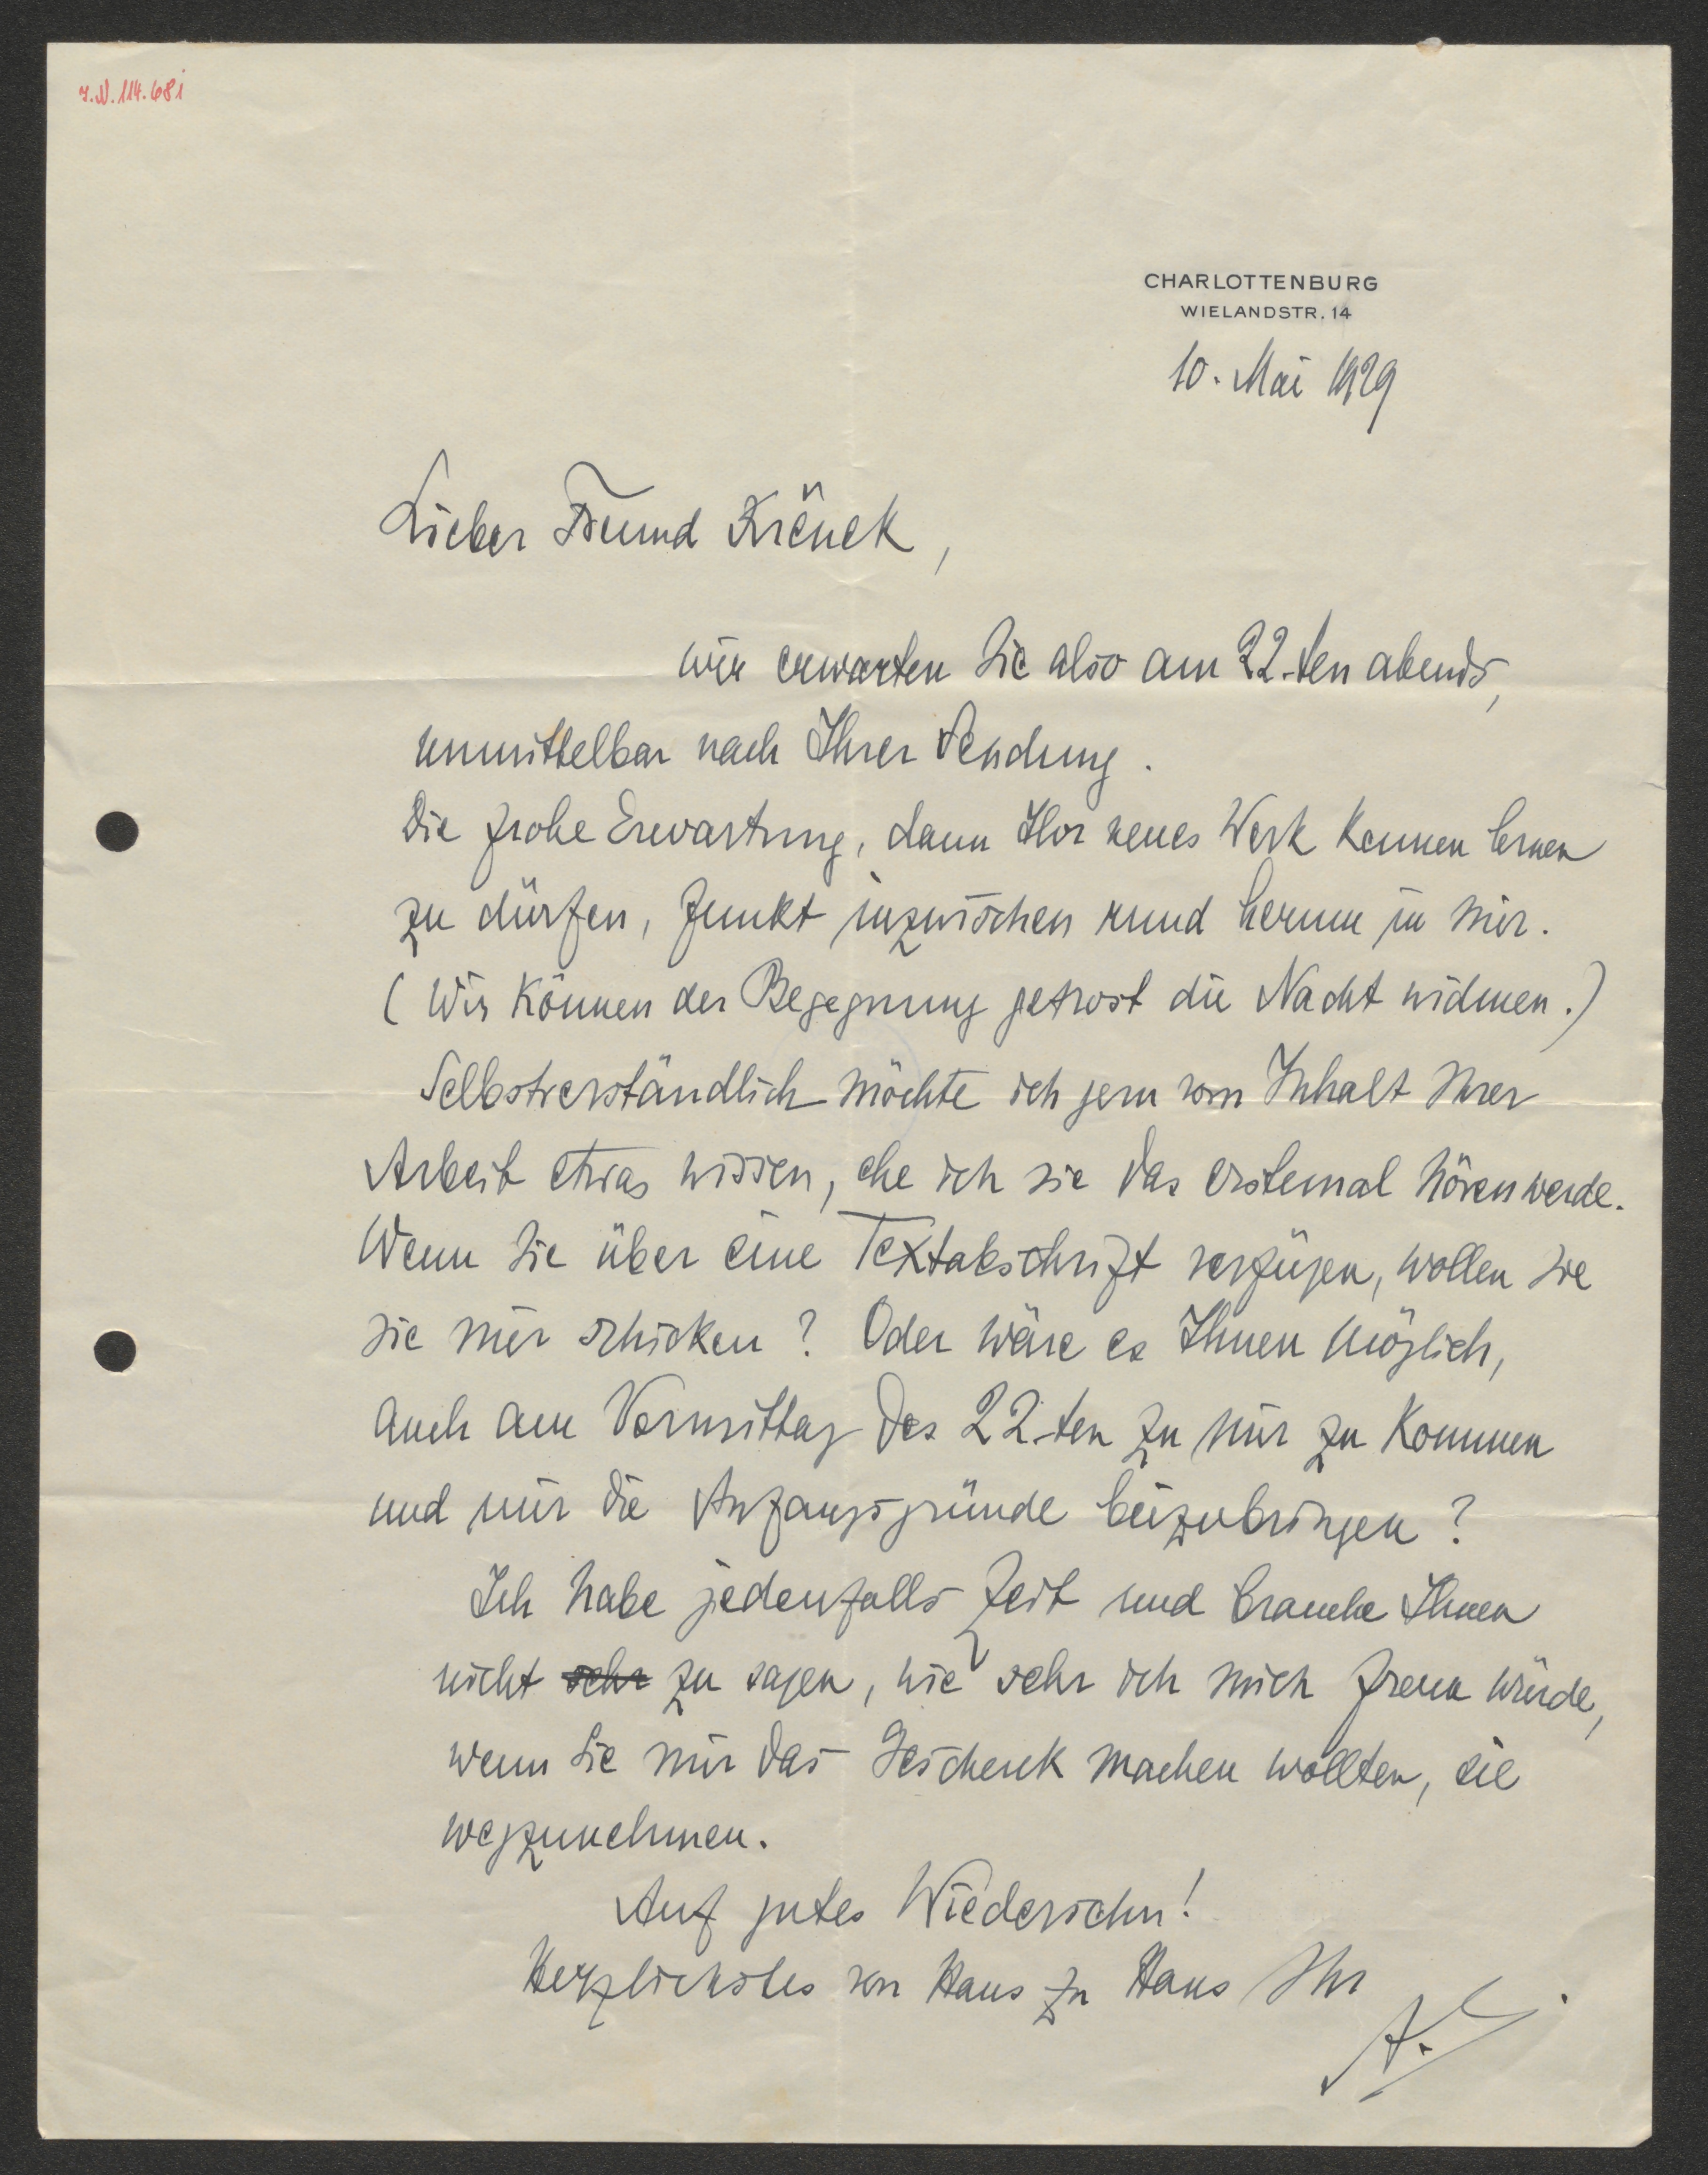 J.N. 114.681
CHARLOTTENBURG
WIELANDSTR. 14
10. Mai 1929
Lieber Freund Křenek,
wir erwarten Sie also am 22-ten abends,
unmittelbar nach Ihrer Sendung.
Die frohe Erwartung, dann Ihr neues Werk kennen lernen
zu dürfen, funkt inzwischen rund herum in mir.
(Wir können der Begegnung getrost die Nacht widmen.)
Selbstverständlich möchte ich gern vom Inhalt Ihrer
Arbeit etwas wissen, ehe ich sie das erstemal hören werde.
Wenn Sie über eine Textabschrift verfügen, wollen Sie
sie mir schicken? Oder wäre es Ihnen möglich,
auch am Vormittag des 22-ten zu mir zu kommen
und mir die Anfangsgründe beizubringen?
Ich habe jedenfalls Zeit und brauche Ihnen
nicht sehr zu sagen, wie sehr ich mich freuen würde,
wenn Sie mir das Geschenk machen wollten, sie
wegzunehmen.
Auf gutes Wiedersehn!
Herzlichstes von Haus zu Haus Ihr